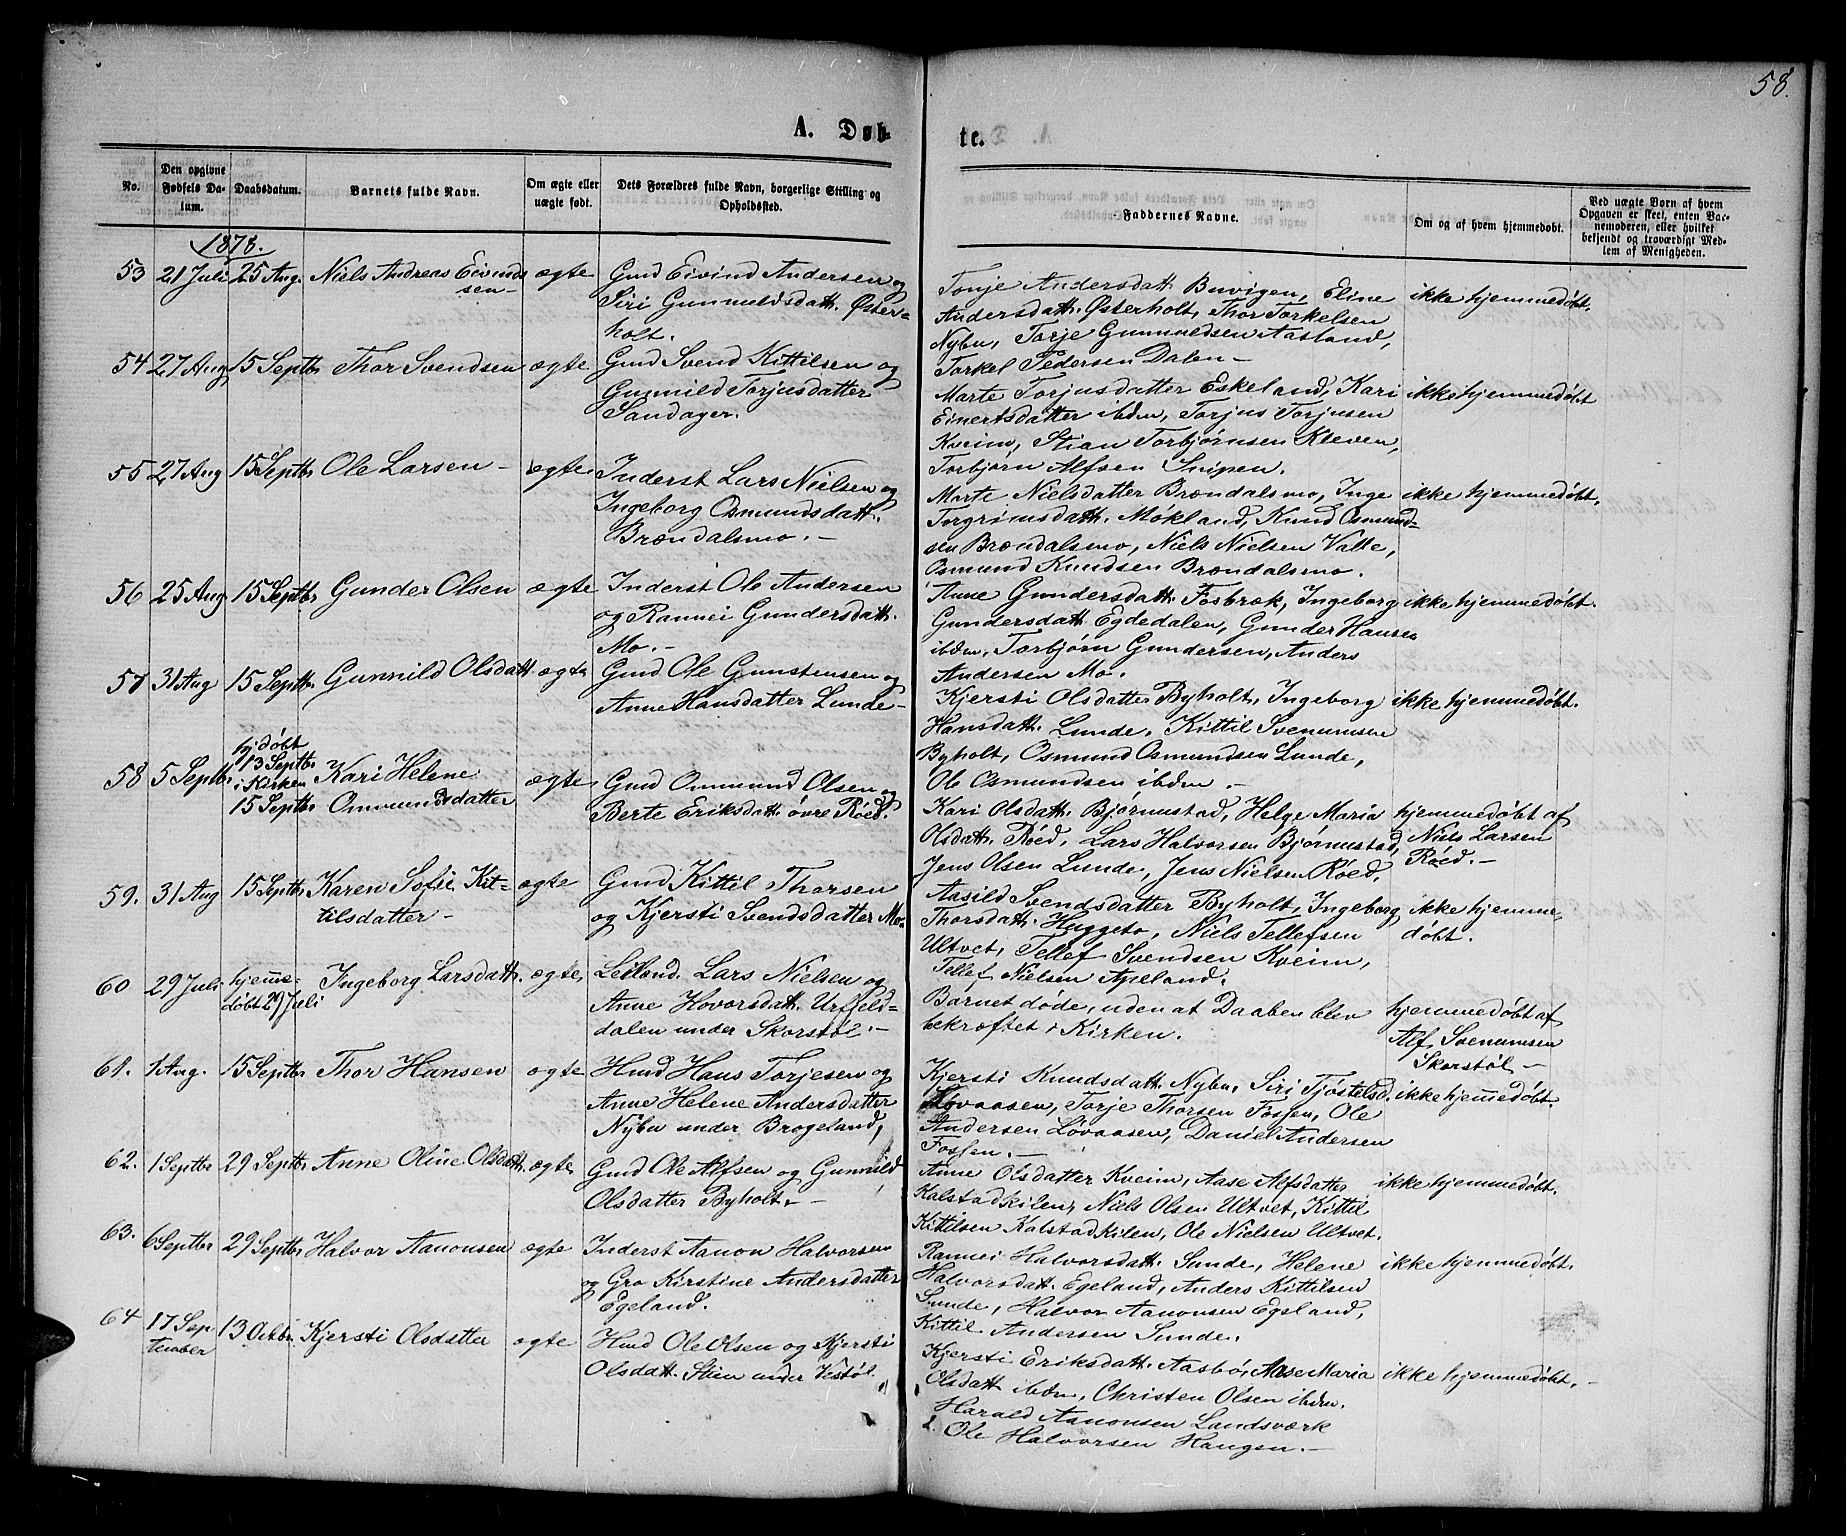 58.
A. Døb-
te.
No.
Den opgivne
Fødsels Da-
tum.
Daabsdatum.
Barnets fulde Navn.
Om ægte eller
uægte født.
Dets Forældres fulde Navn, borgerlige Stilling og
Opholdssted.
Faddernes Navne.
Om og af hvem hjemmedøbt.
Ved uægte Børn af hvem
Opgaven er skeet, enten Bar-
nemoderen, eller hvilket
bekjendt og troværdigt Med-
lem af Menigheden.
1878.
53 21 Juli 25 Aug. Niels Andreas Eivinds
sen-
ægte
Gmd Eivind Andersen og
Siri Gunnuldsdatt. Øster-
holt.
Tonje Andersdatt. Buvigen, Eline
Andersdatt. Østerholt, Thor Torkelsen
Nybu, Torje Gunnuldsen Aasland,
Torkel Pedersen Dalen-
ikke hjemmedøbt.
54 27 Aug 15 Septbr Thor Svendsen ægte
Gmd Svend Kittilsen og
Gunnild Torjusdatter
Sandager.
Marte Torjusdatter Eskeland, Kari
Einertsdatter ibdm, Torjus Torjusen
Kveim, Stian Torbjørnsen Kleven,
Torbjørn Alfsen Snipen.
ikke hjemmedøbt
55 27 Aug 15 Septbr Ole Larsen - ægte
Inderst Lars Nielsen og
Ingeborg Osmundsdatt.
Brændalsmo. -
Marte Nielsdatter Brændalsmo, Inge
Torgrimsdatt. Møkland, Knud Osmund-
sen Brændalsmo, Niels Nielsen Valle,
Osmund Knudsen Brændalsmo.
ikke hjemmedøbt,
56 25 Aug 15 Septbr Gunder Olsen ægte
Inderst Ole Andersen
og Rannei Gundersdatt.
Mo. -
Anne Gundersdatt. Fosbræk, Ingeborg
Gundersdatt. Egdedalen, Gunder Hansen
ibdm, Torbjørn Gundersen, Anders
Andersen Mo.
ikke hjemmedøbt.
57 31 Aug 15 Septbr. Gunnild Olsdatt. ægte
Gmd Ole Gunstensen og
Anne Hansdatter Lunde-
Kjersti Olsdatter Byholt, Ingeborg
Hansdatt. Lunde, Kittil Svenumsen
Byholt, Osmund Osmundsen Lunde,
Ole Osmundsen ibdm -
ikke hjemmedøbt.
58 5 Septbr
hjdøbt
13 Septbr
i Kirken
15 Septbr
Kari Helene
Ommundsdatter
ægte
Gmd Ommund Olsen og
Berte Eriksdatt. øvre Røed.
Kari Olsdatt. Bjørnustad, Helge Maria
Olsdatt. Røed, Lars Halvorsen Bjørnustad,
Jens Olsen Lunde, Jens Nielsen Røed,
hjemmedøbt af
Niels Larsen
Røed. -
59. 31 Aug 15 Septbr Karen Sofie Kit-
tilsdatter -
ægte
Gmd Kittil Thorsen
og Kjersti Svendsdatter Mo.
Aasild Svendsdatter Byholt, Ingeborg
Thorsdatt. Huggeto, Niels Tellefsen
Ultvet, Tellef Svendsen Kveim,
Tellef Nielsen Apeland.
ikke hjemme-
døbt.
60 29 Juli
hjemme-
døbt 29 Juli
Ingeborg Larsdatt. ægte,
Leilend. Lars Nielsen og
Anne Hovorsdatt. Urffjeld-
dalen under Skorstøl. -
Barnet døde, uden at Daaben blev
bekræftet i Kirken.
hjemmedøbt af
Alf Svenumsen
Skorstøl -
61. 1 Aug. 15 Septbr Thor Hansen ægte
Hmd Hans Torjesen og
Anne Helene Andersdatter
Nybu under Brogeland,
Kjersti Knudsdatt. Nybu, Siri Tjøstelsd.
Løvaasen, Torje Thorsen Fossen, Ole
Andersen Løvaasen, Daniel Andersen
Fossen. -
ikke hjemmedøbt.
62. 1 Septbr 29 Septbr Anne Oline Olsdatt. ægte
Gmd Ole Alfsen og Gunnild
Olsdatter Byholt. -
Anne Olsdatter Kveim, Aase Alfsdatter
Kalstadkilen, Niels Olsen Ultvet, Kittil
Kittilsen Kalstadkilen, Ole Nielsen Ultvet.
ikke hjemmedøbt.
63. 6 Septbr 29 Septbr Halvor Aanonsen ægte
Inderst Aanon Halvorsen
og Gro Kirstine Andersdatter
Egeland.
Rannei Halvorsdatt. Sunde, Helene
Halvorsdatt. Egeland, Anders Kittilsen
Sunde, Halvor Aanonsen Egeland,
Kittil Andersen Sunde.
ikke hjemmedøbt.
64 17 Sep-
tember
13 Octbr. Kjersti Olsdatter ægte
Hmd Ole Olsen og Kjersti
Olsdatt. Stien under Vestøl
Kjersti Eriksdatt. Aasbø, Aase Maria
Olsdatt ibdm, Christen Olsen ibdm.
Harald Aanonsen Landsværk
& Ole Halvorsen Haugen. -
ikke hjemmedøbt. -